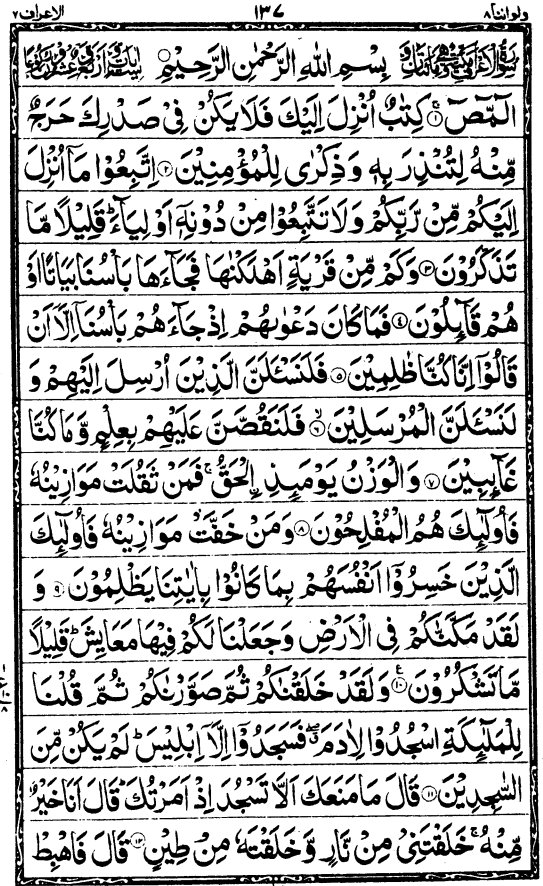 ولواننا ٨ ١٣٧ الاعراف ٧
بِسْمِ اللهِ الرَّحْمٰنِ الرَّحِيْمِ
الٓمّٓصٓ ۚ﴿١﴾ كِتٰبٌ اُنْزِلَ اِلَيْكَ فَلَا يَكُنْ فِيْ صَدْرِكَ حَرَجٌ
مِّنْهُ لِتُنْذِرَ بِهٖ وَ ذِكْرٰى لِلْمُؤْمِنِيْنَ ﴿٢﴾ اِتَّبِعُوْا مَاۤ اُنْزِلَ
اِلَيْكُمْ مِّنْ رَّبِّكُمْ وَلَا تَتَّبِعُوْا مِنْ دُوْنِهٖۤ اَوْلِيَآءَ ؕ قَلِيْلًا مَّا
تَذَكَّرُوْنَ ﴿٣﴾ وَكَمْ مِّنْ قَرْيَةٍ اَهْلَكْنٰهَا فَجَآءَهَا بَاْسُنَا بَيَاتًا اَوْ
هُمْ قَآئِلُوْنَ ﴿٤﴾ فَمَا كَانَ دَعْوٰىهُمْ اِذْ جَآءَهُمْ بَاْسُنَاۤ اِلَّاۤ اَنْ
قَالُوْۤا اِنَّا كُنَّا ظٰلِمِيْنَ ﴿٥﴾ فَلَنَسْـَٔلَنَّ الَّذِيْنَ اُرْسِلَ اِلَيْهِمْ وَ
لَنَسْـَٔلَنَّ الْمُرْسَلِيْنَ ۙ﴿٦﴾ فَلَنَقُصَّنَّ عَلَيْهِمْ بِعِلْمٍ وَّمَا كُنَّا
غَآئِبِيْنَ ﴿٧﴾ وَالْوَزْنُ يَوْمَئِذِ اۨلْحَقُّ ۚ فَمَنْ ثَقُلَتْ مَوَازِيْنُهٗ
فَاُولٰٓئِكَ هُمُ الْمُفْلِحُوْنَ ﴿٨﴾ وَمَنْ خَفَّتْ مَوَازِيْنُهٗ فَاُولٰٓئِكَ
الَّذِيْنَ خَسِرُوْۤا اَنْفُسَهُمْ بِمَا كَانُوْا بِاٰيٰتِنَا يَظْلِمُوْنَ ﴿٩﴾ وَ
لَقَدْ مَكَّنّٰكُمْ فِي الْاَرْضِ وَجَعَلْنَا لَكُمْ فِيْهَا مَعَايِشَ ؕ قَلِيْلًا
مَّا تَشْكُرُوْنَ ﴿١٠﴾ وَلَقَدْ خَلَقْنٰكُمْ ثُمَّ صَوَّرْنٰكُمْ ثُمَّ قُلْنَا
لِلْمَلٰٓئِكَةِ اسْجُدُوْا لِاٰدَمَ ۖ فَسَجَدُوْۤا اِلَّاۤ اِبْلِيْسَ ؕ لَمْ يَكُنْ مِّنَ
السّٰجِدِيْنَ ﴿١١﴾ قَالَ مَا مَنَعَكَ اَلَّا تَسْجُدَ اِذْ اَمَرْتُكَ ؕ قَالَ اَنَا خَيْرٌ
مِّنْهُ ۚ خَلَقْتَنِيْ مِنْ نَّارٍ وَّخَلَقْتَهٗ مِنْ طِيْنٍ ﴿١٢﴾ قَالَ فَاهْبِطْ